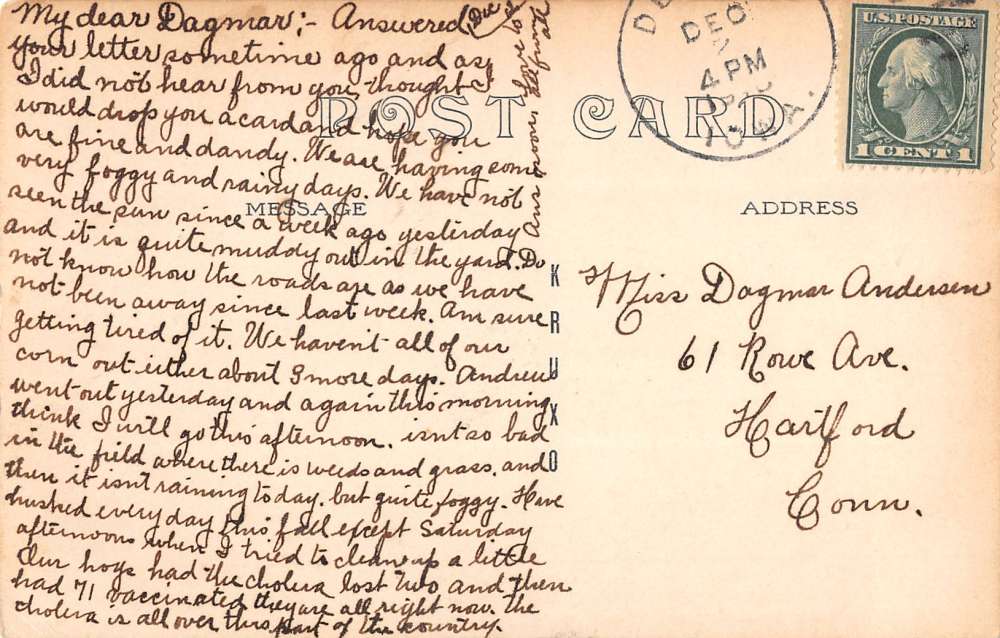 My dear Dagmar:- Answered
your letter sometime ago and as
I did not hear from you, thought I
would drop you a card and hope you
are fine and dandy. We are having some
very foggy and rainy days. We have not
seen the sun since a week ago yesterday
and it is quite muddy out in the yard. Do
not know how the roads are as we have
not been away since last week. Am sure
getting tired of it. We havent all of our
corn out either about 3 more days. Andrew
went out yesterday and again this morning
think I will go this afternoon. isnt so bad
in the field where there is weeds and grass. and
then it isn't raining today. but quite foggy. Have
husked every day this fall except Saturday
afternoons when I tried to clean up a little
Our hogs had the cholera lost two and then
had 71 vaccinated they are all right now. the
cholera is all over this part of the country.
Ans sooner
love to
POST CARD
MESSAGE
ADDRESS
KRUXO
DEC
4 PM
IOWA.
U.S. POSTAGE
1 CENT 1
Miss Dagmar Andersen
61 Rowe Ave.
Hartford
Conn.